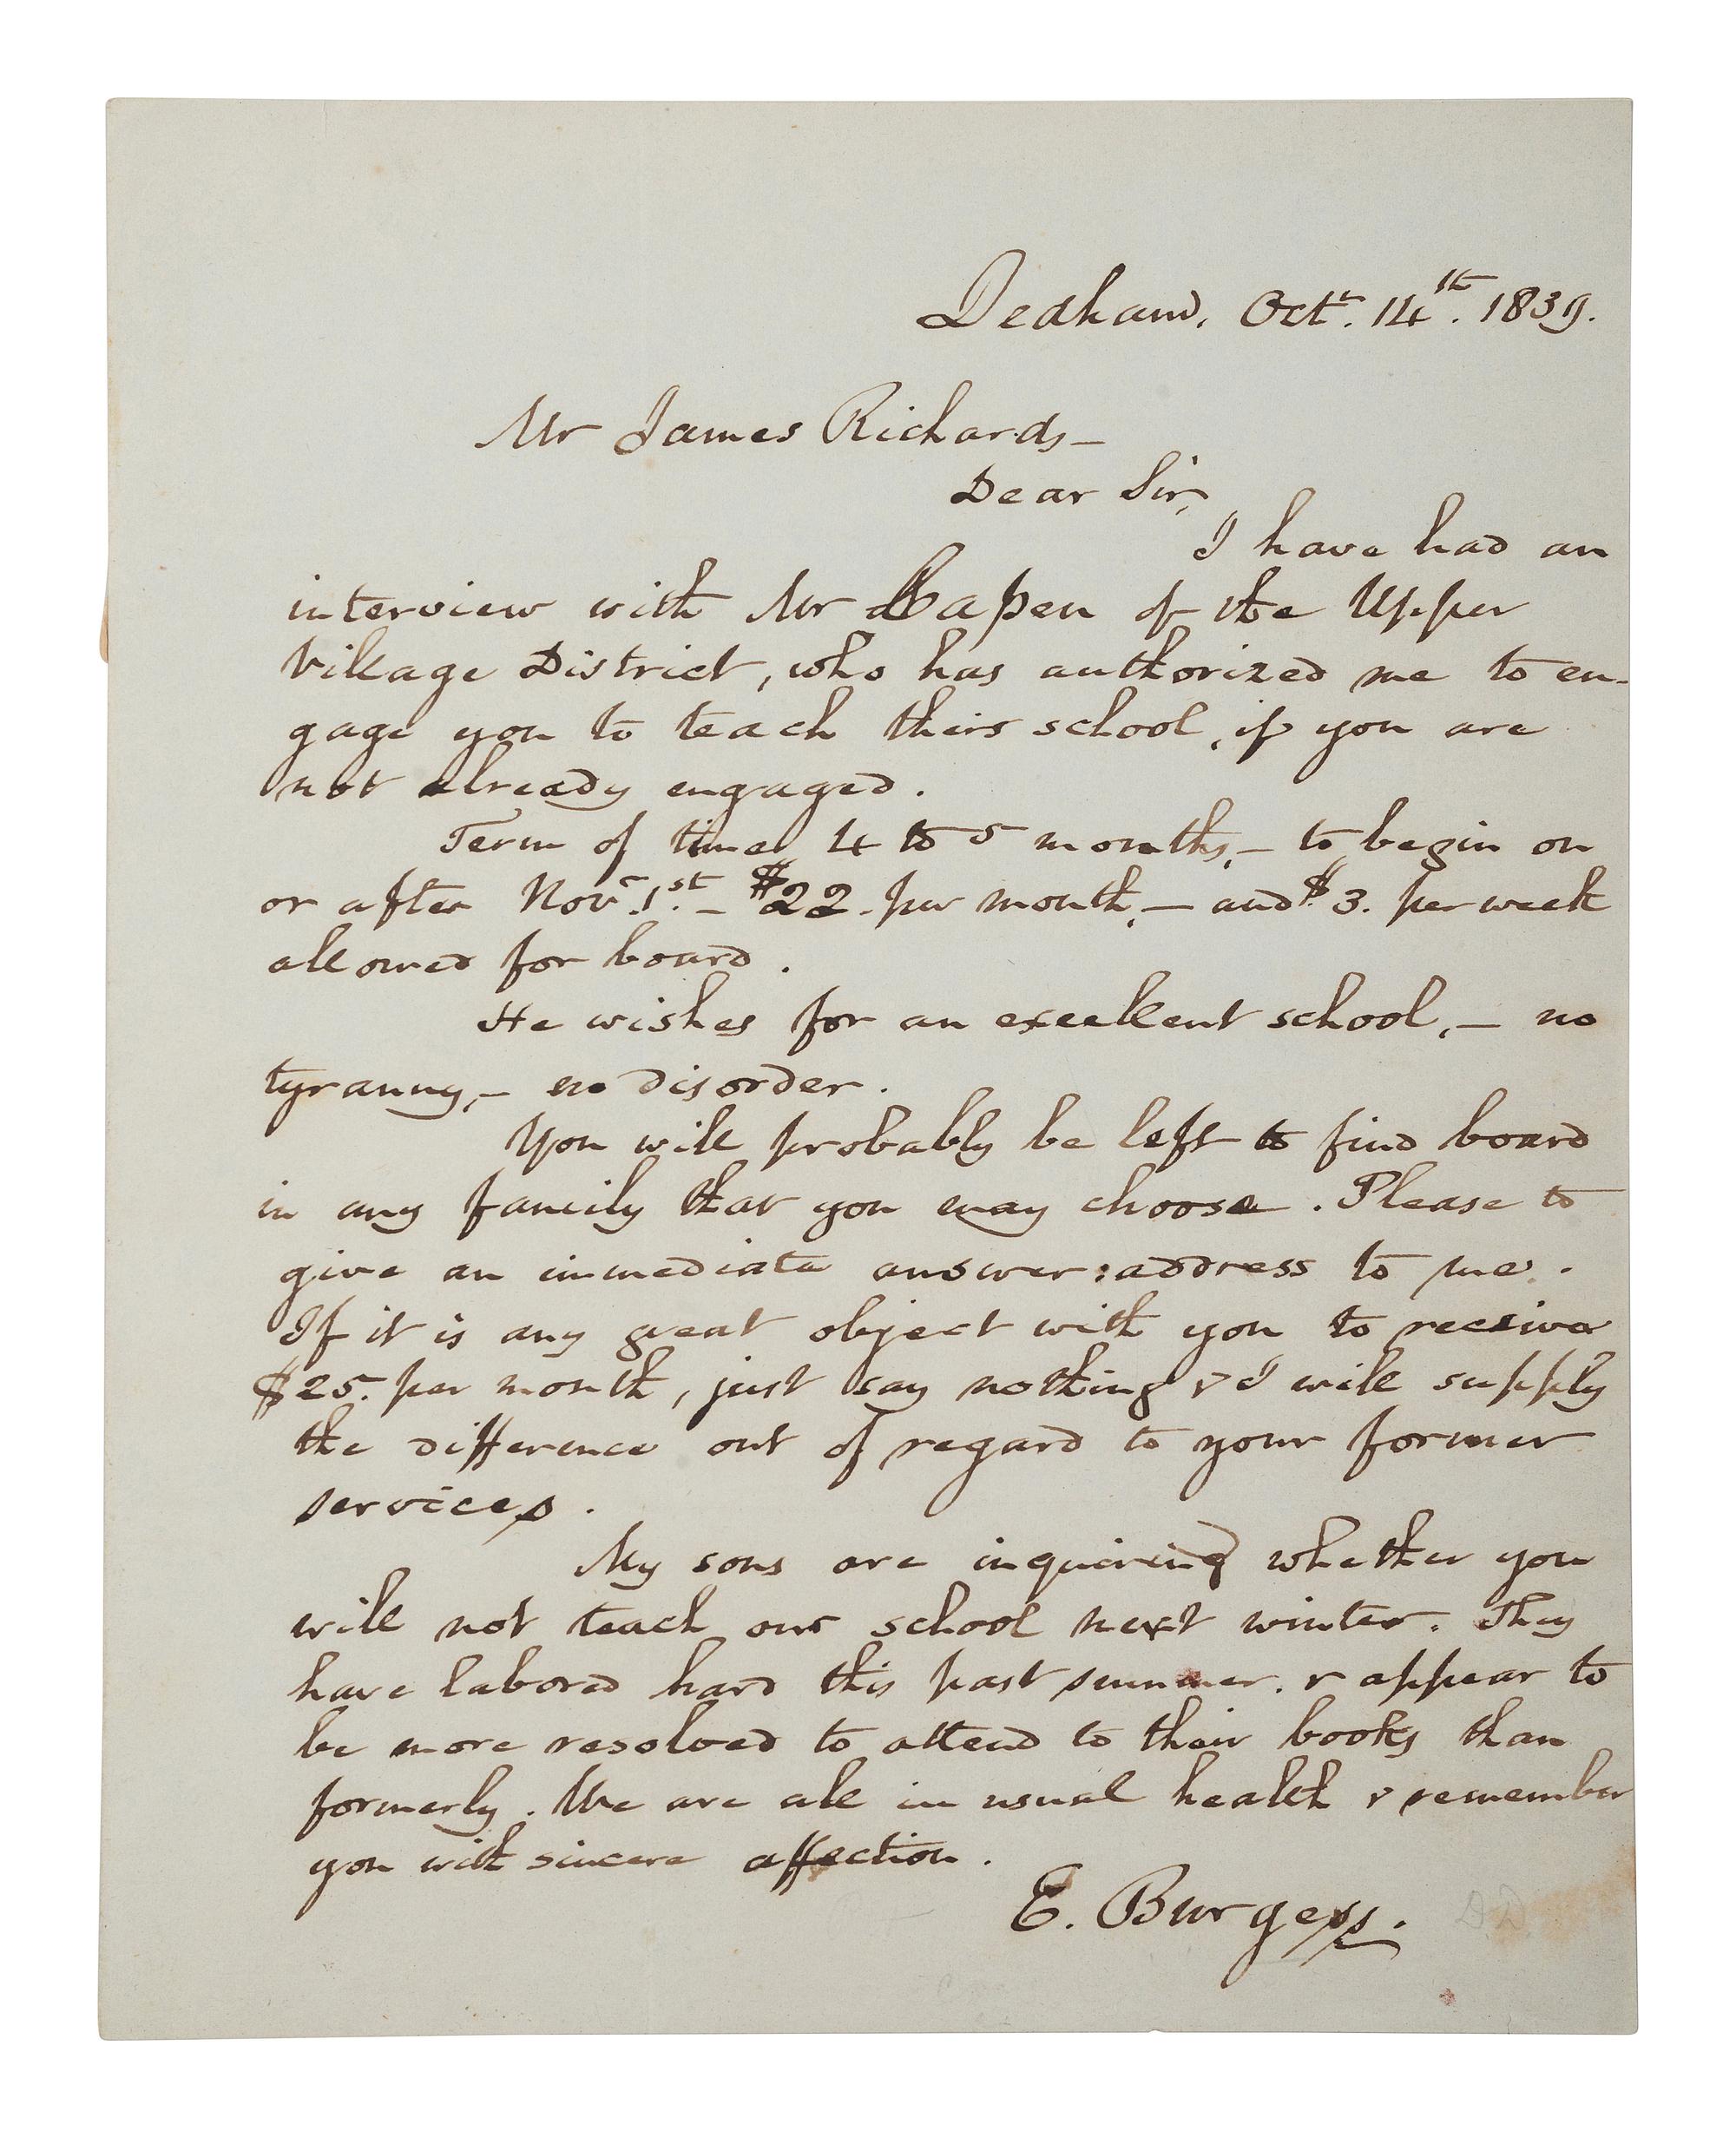 Dedham, Octr. 14th. 1839.
Mr James Richards—
Dear Sir,
I have had an
interview with Mr Capen of the Upper
Village District, who has authorized me to en-
gage you to teach theirs school, if you are
not already engaged.
Term of time 4 to 5 months,— to begin on
or after Novr. 1st.— $22. per month,— and $3. per week
allowed for board.
He wishes for an excellent school,— no
tyranny,— no disorder.
You will probably be left to find board
in any family that you may choose. Please to
give an immediate answer: address to me.
If it is any great object with you to receive
$25. per month, just say nothing & I will supply
the difference out of regard to your former
services.
My sons are inquiring whether you
will not teach our school next winter. They
have labored hard this past summer. & appear to
be more resolved to attend to their books than
formerly. We are all in usual health & remember
you with sincere affection.
E. Burgess.